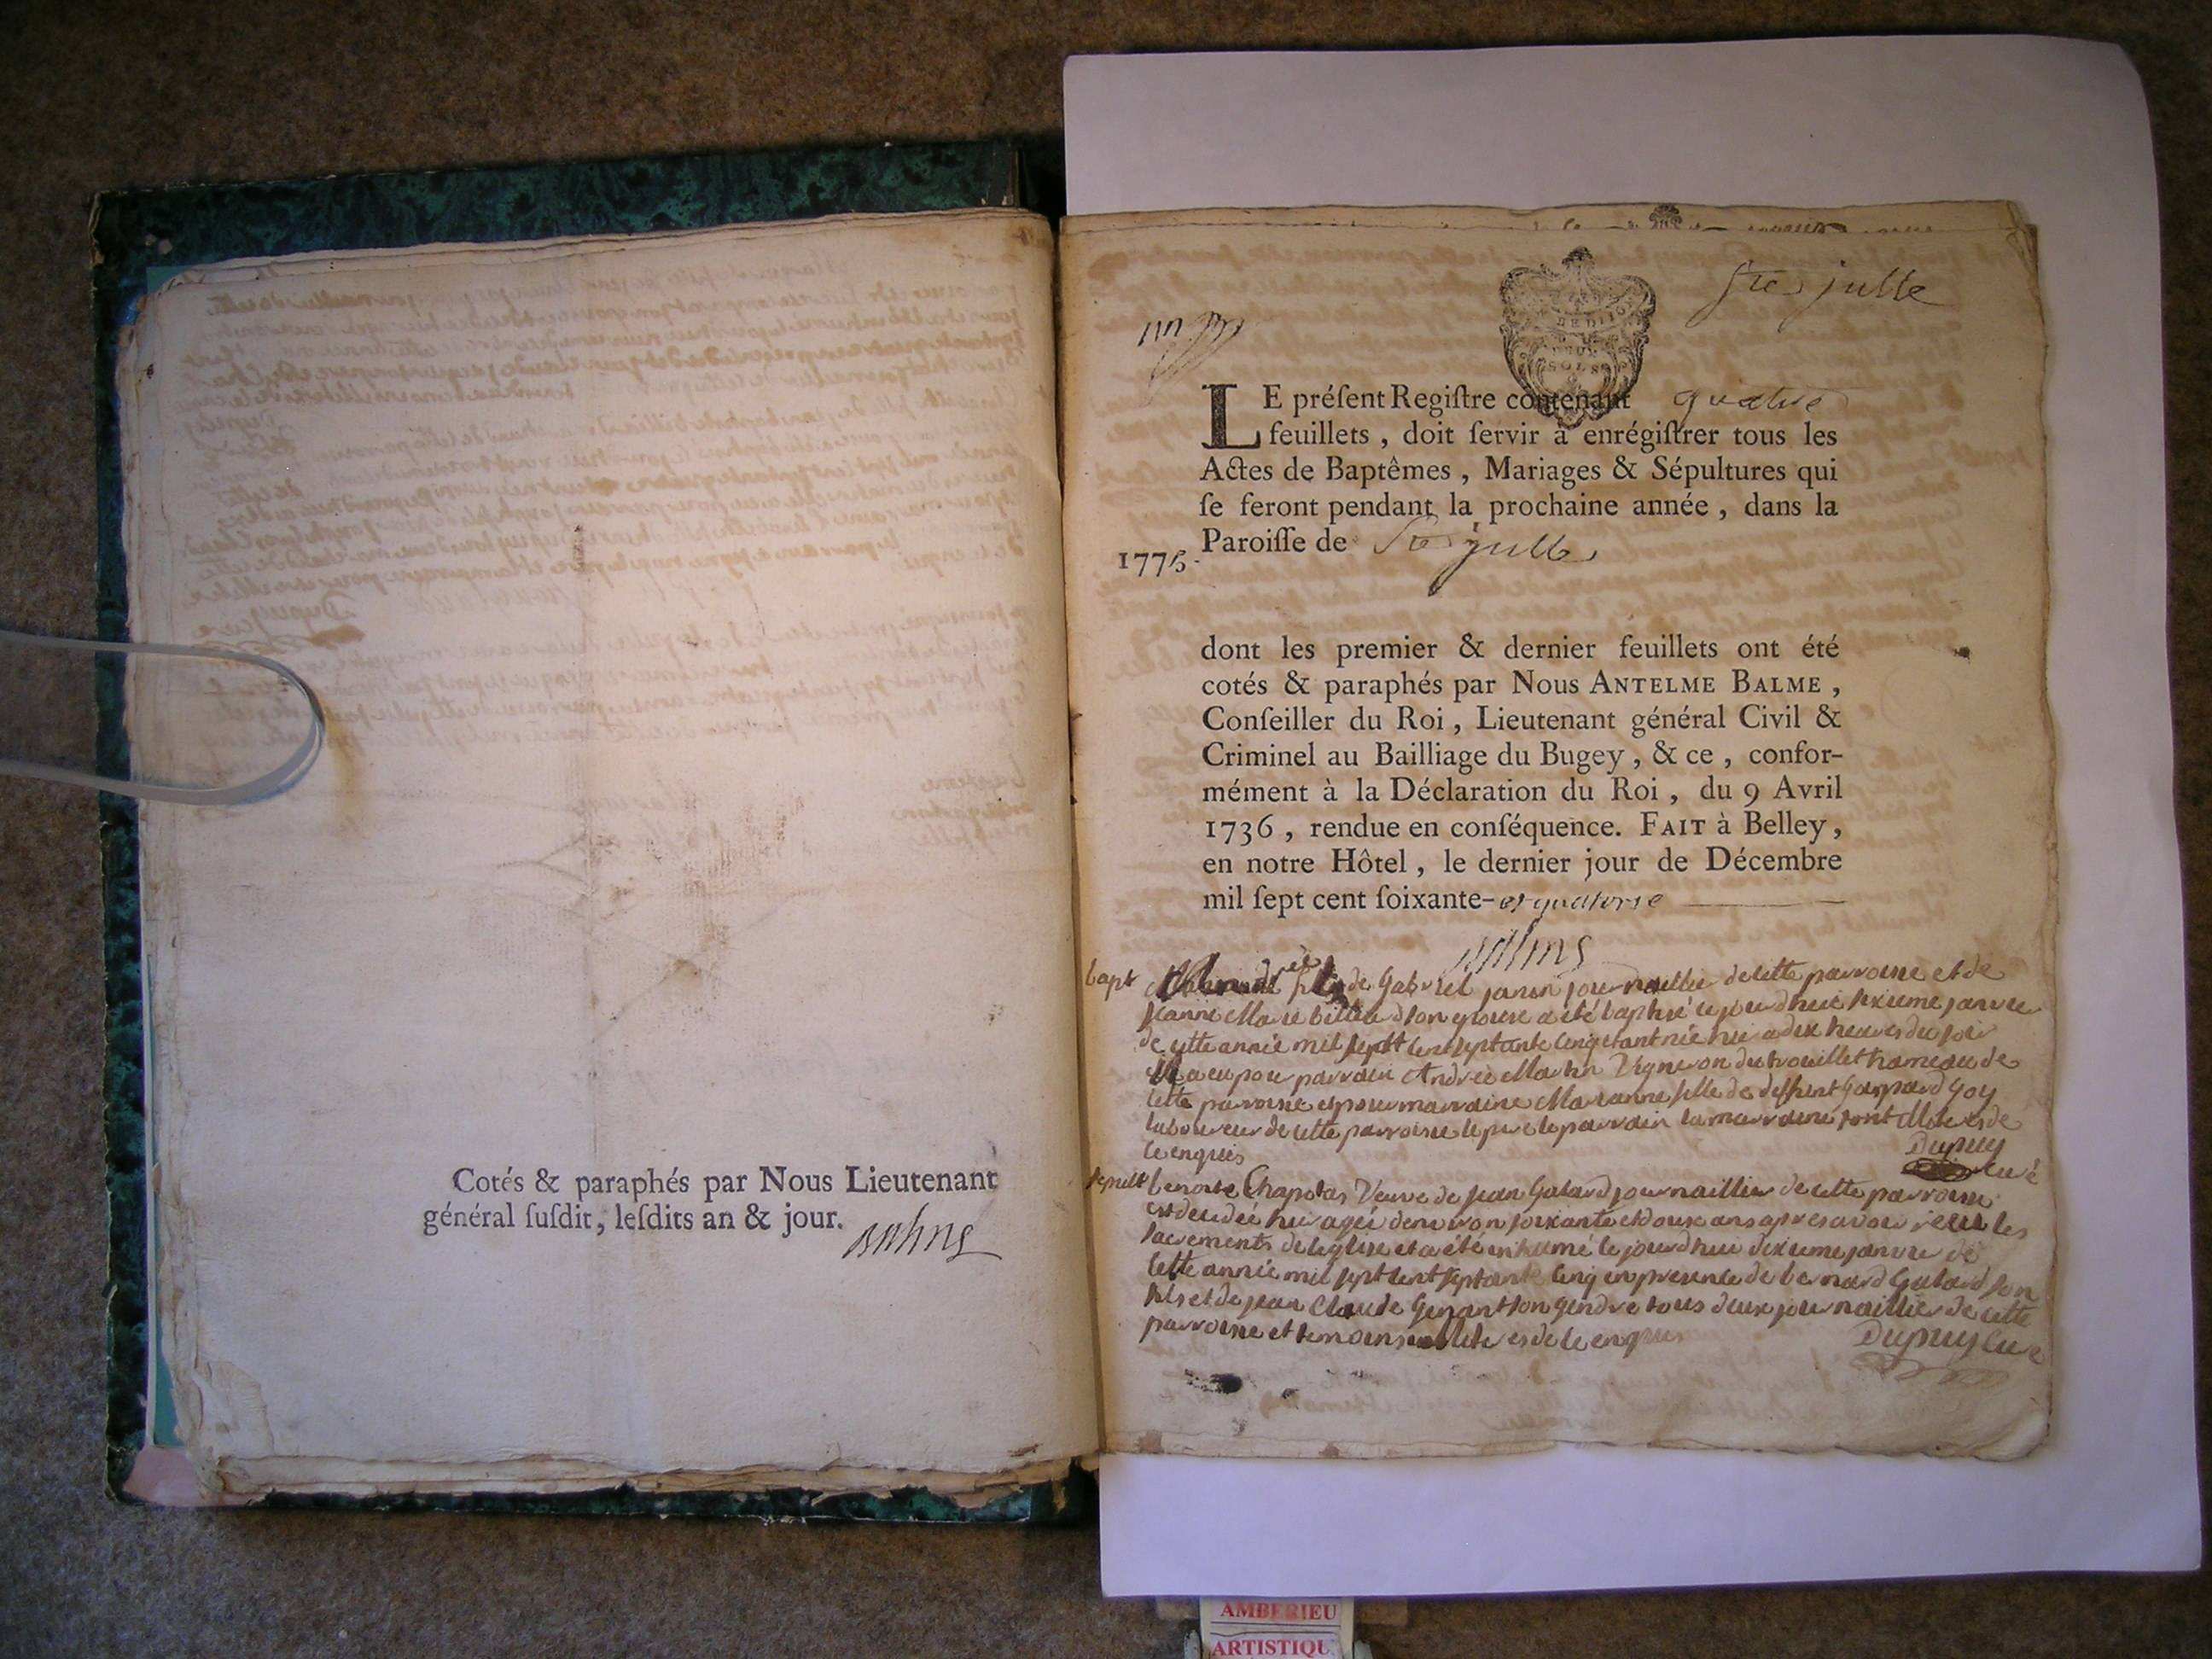 Cotés & paraphés par Nous Lieutenant
général ſuſdit, leſdits an & jour.
Ste julle
un
LE préſent Regiſtre contenant quatre
feuillets, doit ſervir à enrégiſtrer tous les
Actes de Baptêmes, Mariages & Sépultures qui
ſe feront pendant la prochaine année, dans la
Paroiſſe de Ste jullе
1775.
dont les premier & dernier feuillets ont été
cotés & paraphés par Nous ANTELME BALME,
Conſeiller du Roi, Lieutenant général Civil &
Criminel au Bailliage du Bugey, & ce, confor-
mément à la Déclaration du Roi, du 9 Avril
1736, rendue en conſéquence. FAIT à Belley,
en notre Hôtel, le dernier jour de Décembre
mil ſept cent ſoixante- et quatorse
balme
bapt
de Gabriel janin journaillier de cette parroisse et de
jeanne Marie son epouse a été baptisé ce jourdhui sixieme janvier
de cette année mil sept cent septante cinq etant née hier a dix heures du soir
a eu pour parrain André Martin Vigneron du trouillet hameau de
cette parroisse et pour marraine Marianne fille de deffunt Gaspard Goy
laboureur de cette parroisse le pere le parrain la marraine sont illiteres de
ce enquis
Dupuy
curé
sepult benoite Chapolas Veuve de jean Galard journaillier de cette parroisse
est decedeé hier ageé denviron soixante et douse ans apres avoir receu les
sacrements de leglise et a été inhumé ce jourdhui dixieme janvier de
cette année mil sept cent septante cinq en presence de bernard Galard son
fils et de jean Claude Genant son gendre tous deux journaillier de cette
parroisse et temoins illiteres de ce enquis
Dupuy curé
AMBERIEU
ARTISTIQU